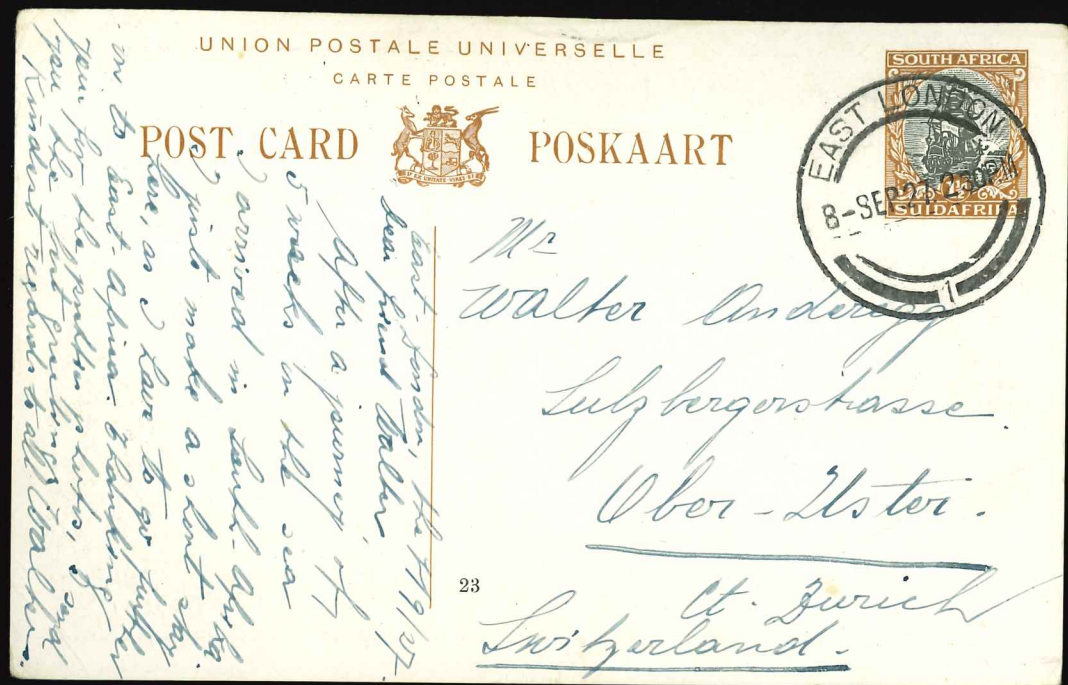 UNION POSTALE UNIVERSELLE
CARTE POSTALE
POST CARD POSKAART
EX UNITATE VIRES
SOUTH AFRICA
SUIDAFRIKA
EAST LONDON
8-SEP.27. 2 30 PM
1
Mr
Walter Anderegg
Sulzbergerstrasse
Ober-Uster.
Ct. Zürich
Switzerland.
23
East-London, the 7/9/27.
Dear friend Walter,
After a journey of
5 weeks on the sea
I arrived in South-Afrika
I just make a short stay
here, as I have to go further
on to East-Africa. Thanking
you for the photos, I send
you the best greetings
Kindest regards to all